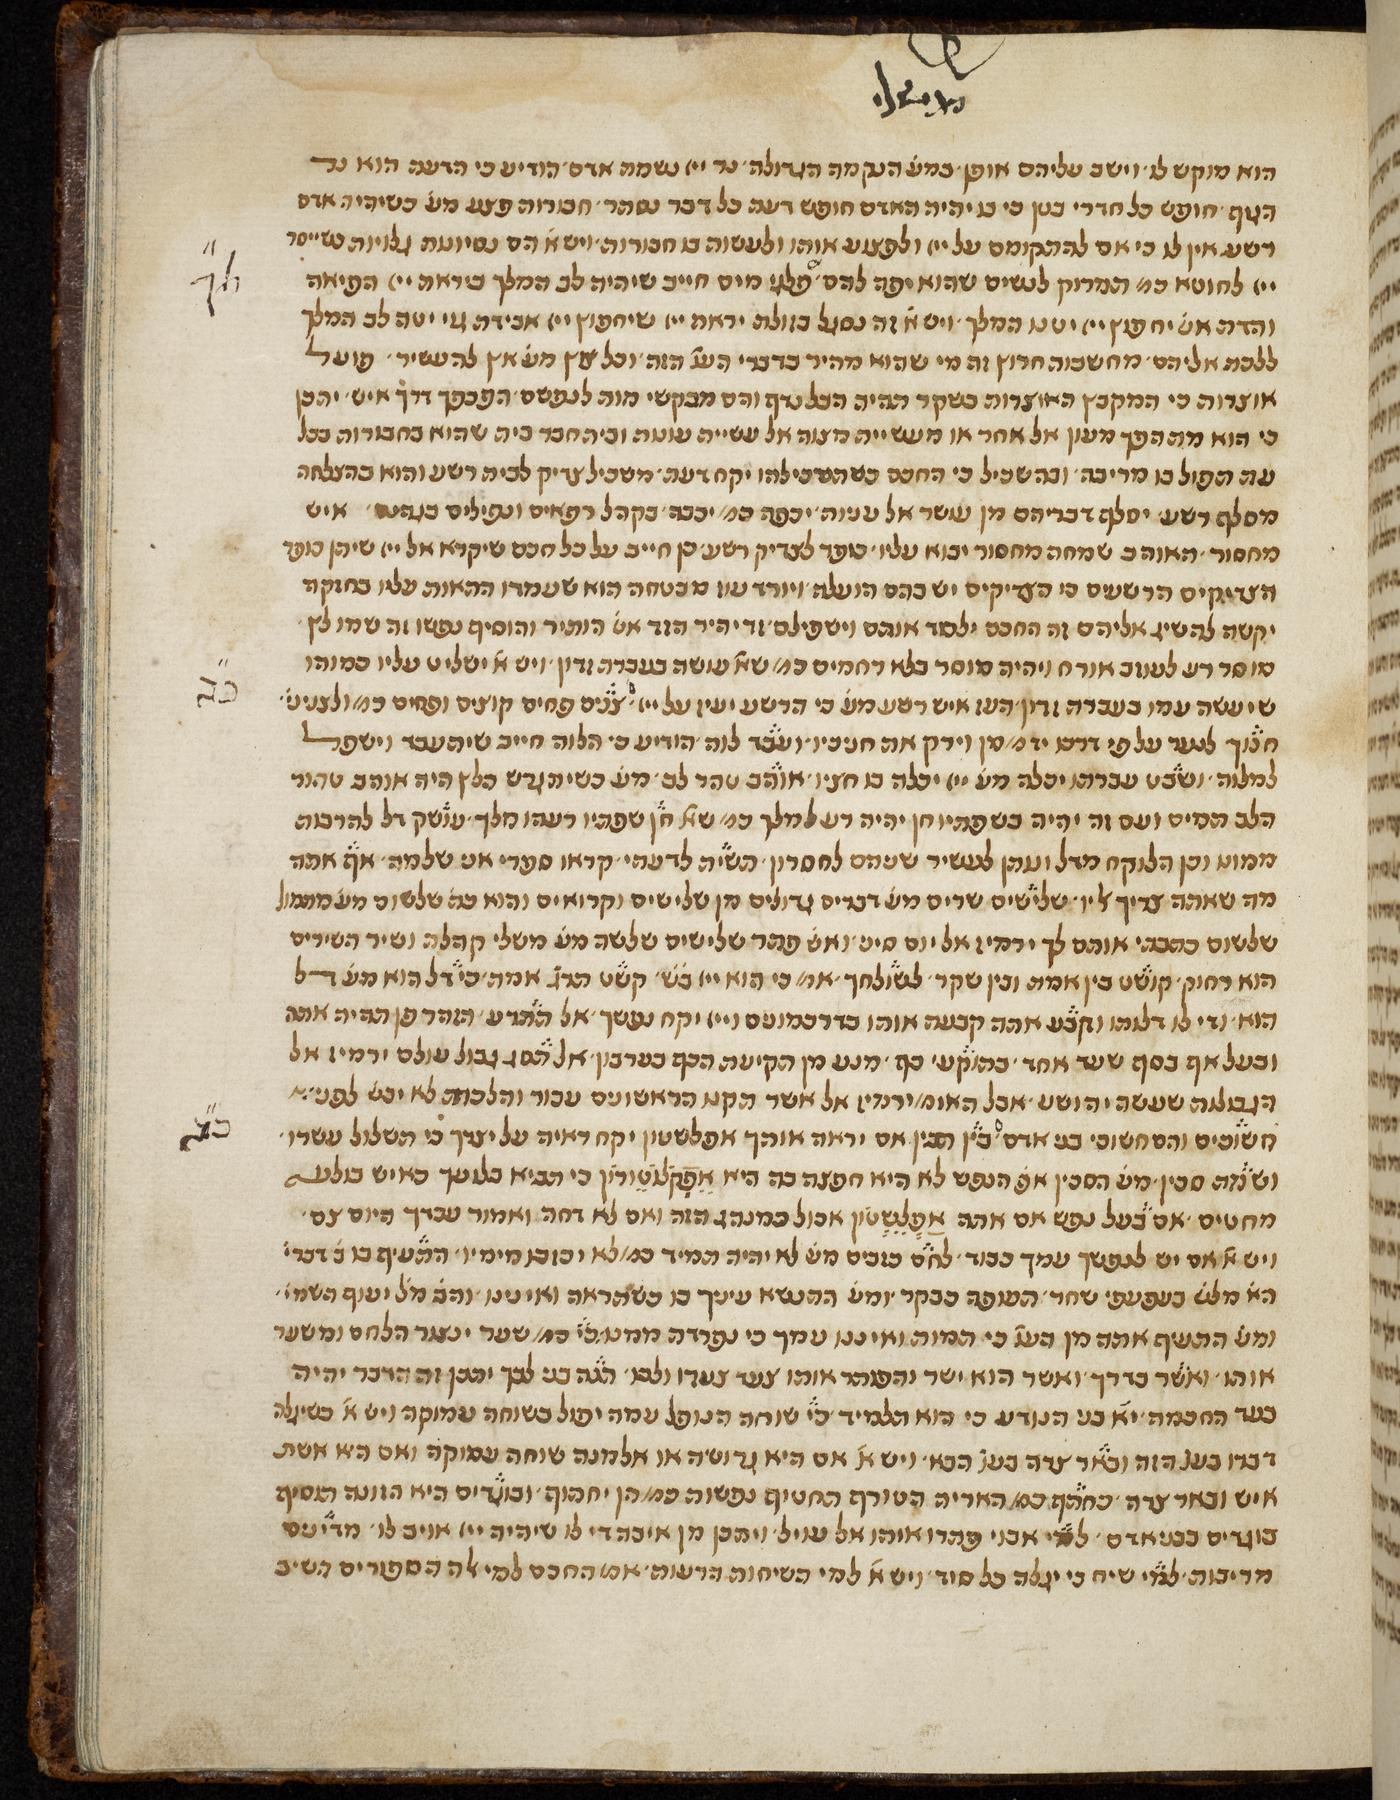 משלי
הוא מוקש לו׳ וישב עליהם אופן׳ כמש׳ הנקמה הגדולה׳ נר ייי נשמת אדם׳ הודיע כי הדעת הוא נר
הגוף׳ חופש כל חדרי בטן כי בו יהיה האדם חופש דעת כל דבר נסתר׳ חבורות פצע מש׳ כשיהיה אדם
רשע אין לו כי אם להתקומם על ייי ולפצוע אותו ולעשות בו חבורות׳ ויש א׳ הם נסיונות גלויות כשייסר
כא
ייי לחוטא כמ׳ תמרוק לנשים שהוא יפה להם׳ פלגי מים חייב שיהיה לב המלך ביראת ייי הפיאה
והדת אש׳ יחפוץ ייי יטנו המלך׳ ויש א׳ זה נסגל בזולת יראת ייי שיחפוץ ייי אבידת גוי יטה לב המלך
ללכת אליהם׳ מחשבות חרוץ זה מי שהוא מהיר בדברי הע׳ הזה׳ וכל אץ מש׳ אץ להעשיר׳ פועל
אוצרות כי המקבץ האוצרות בשקר תהיה הבל נדף והם מבקשי מות לנפשם׳ הפכפך דרך איש׳ יתכן
כי הוא מתהפך מעון אל אחר או מעשיית מצוה אל עשיית עונות ובית חבר בית שהוא בחבורות בכל
עת תפול בו מריבה׳ ובהשכיל כי החכם כשהשכילהו יקח דעת׳ משכיל צדיק לבית רשע והוא בהצלחה
מסלף רשע׳ יסלף דבריהם מן עושר אל עניות׳ יכפה כמ׳ יכבה׳ בקהל רפאים ונפילים בגהנם׳ איש
מחסור׳ האוהב שמחה מחסור יבוא עליו׳ כופר לצדיק רשע׳ כן חייב על כל חכם שיקרא אל ייי שיתן כופר
הצדיקים הרשעים כי הצדיקים יש בהם תועלת׳ ויורד עוז מבטחה הוא שעמדו התאות עליו בחזקה
יקשה להשיג אליהם זה החכם ילמד אותם וישפילם׳ זד יהיר הזד אש׳ הותיר והוסיף נפשו זה שמו לץ׳
מוסר רע לעוזב אורח ויהיה מוסר בלא רחמים כמ׳ שא׳ עושה בעברת זדון׳ ויש א׳ ישליט עליו כמותו
כב
שיעשה עמו בעברת זדון׳ העז איש רשע מש׳ כי הרשע יעיז על ייי׳ צנים פחים קוצים ופחים כמ׳ ולצנינים׳
חנוך לנער על פי דרכו ידמ׳ מן וירק את חניכיו׳ ועבד לוה׳ הודיע כי הלוה חייב שיתעבד וישפל
למלוה׳ ושבט עברתו יכלה מש׳ ייי יכלה בו חציו׳ אוהב טהר לב׳ מש׳ כשיתגרש הלץ היה אוהב טהור
הלב תמיס ועם זה יהיה בשפתיו חן יהיה רע למלך כמ׳ שא׳ חן שפתיו רעהו מלך׳ עושק דל להרבות
ממונו וכן הלוקח מדל ונותן לעשיר שניהם לחסרון׳ תשית לדעתי׳ קראו ספרי אני שלמה׳ אף אתה
מה שאתה צריך אליו׳ שלישים שרים מש׳ דברים גדולים מן שלישים וקרואים והוא בה׳ שלשום מש׳ מתמול
שלשום כתבתי אותם לך ירמיז אל יום סיני׳ ואש׳ פתר שלישים שלשה מש׳ משלי קהלת ושיר השירים
הוא רחוק׳ קושט בין אמת ובין שקר׳ לשולחך׳ אמ׳ כי הוא ייי בש׳׳ קשט תרג׳ אמת׳ כי דל הוא מש׳ דל
הוא׳ ודי לו דלותו וקבע אתה קבעת אותו בדרכמונים וייי יקח נפשך׳ אל תתרע׳ הזהר פן תהיה אתה
ובעל אף בסף שער אחד׳ בתוקעי כף׳ מנע מן תקיעת הכף בערבון׳ אל תסג גבול עולם ירמיז אל
הגבולות שעשה יהושע׳ אבל האומ׳ ירמיז אל אשר תקנו הראשונים עבור והלכת לא יכש׳ לפני׳
כג
חשוכים והם חשוכי בני אדם׳ בין תבין אם יראה אותך אפלשטון יקח ראיה על יצרך כי תשלול עשרו׳
ושמת סכין׳ מש׳ הסכין אם הנפש לא היא חפצה בה היא אפקלטורון כי תביא בלועך כאיש בולע
מחטים׳ אם בעל נפש אם אתה אפלשטון אכול כמנהג הזה ואם לא דחה ואמור עברך היום צם׳
ויש א׳ אם יש לנפשך עמך כבוד׳ לחם כזבים מש׳ לא יהיה תמיד כמ׳ לא יכזבו מימיו׳ התעיף בו ב׳ דברי׳
הא׳ מלש׳ בעפעפי שחר׳ תעופה כבקר׳ ומש׳ ההנשא עיניך בו כשתראה ואיננו׳ והב׳ מל׳ יעוף השמי׳׳
ומש׳ התשיף אתה מן הע׳ כי תמות ואיננו עמך כי נפרדת ממנו׳ כי כמ׳ שער ינצור הלחם ומשער
אותו׳ ואשר בדרך׳ ואשר הוא ישר והפותר אותו צעד צעדו ולבו׳ הטה בני לבך יתכן זה הדבר יהיה
בעד החכמה׳ יא׳ בני הנודע כי הוא תלמיד׳ כי שוחה הנופל עמה יפול בשוחה עמוקה ויש א׳ כשיגלה
דברו בעו׳ הזה ובאר צרה בעו׳ הבא׳ ויש א׳ אם היא גרושה או אלמנה שוחה עמוקה ואם היא אשת
איש ובאר צרה׳ כחתף כמ׳ האריה הטורף תחטיף נפשות כמ׳ הן יחתוף׳ ובוגדים היא הזונה תוסיף
בוגדים בבני אדם׳ למי אבוי פתרו אותו אל עויל׳ ויתכן מן איבה די לו שיהיה ייי אויב לו׳ מדינים
מריבות׳ למי שיח כי יגלה כל סוד׳ ויש א׳ למי השיחות הרעות׳ אמ׳ החכם למי אלה הספורים השיב